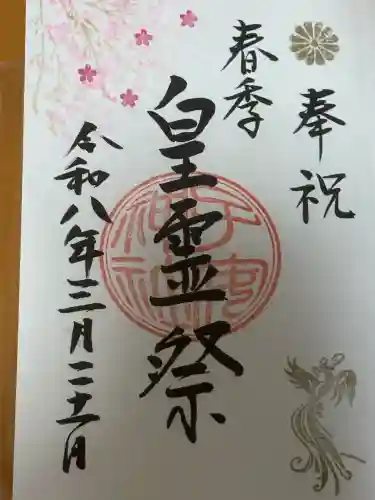 奉祝
春季
皇霊祭
神社
令和八年三月二十一日